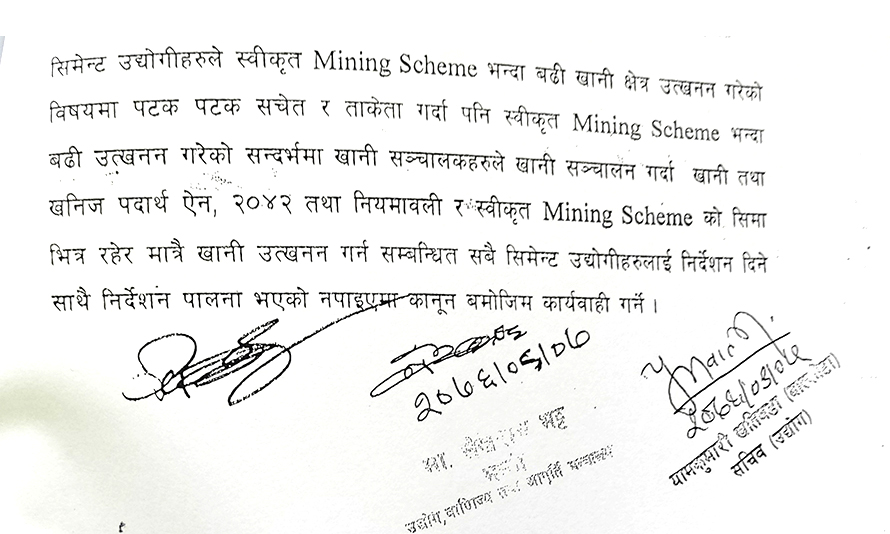 सिमेन्ट उद्योगीहरुले स्वीकृत Mining Scheme भन्दा बढी खानी क्षेत्र उत्खनन गरेको
विषयमा पटक पटक सचेत र ताकेता गर्दा पनि स्वीकृत Mining Scheme भन्दा
बढी उत्खनन गरेको सन्दर्भमा खानी सञ्चालकहरुले खानी सञ्चालन गर्दा खानी तथा
खनिज पदार्थ ऐन, २०४२ तथा नियमावली र स्वीकृत Mining Scheme को सिमा
भित्र रहेर मात्रै खानी उत्खनन गर्न सम्बन्धित सबै सिमेन्ट उद्योगीहरुलाई निर्देशन दिने
साथै निर्देशन पालना भएको नपाइएमा कानून बमोजिम कार्यवाही गर्ने ।
मा. लेखराज भट्ट
मन्त्री
उद्योग, वाणिज्य तथा आपूर्ति मन्त्रालय
यामकुमारी खतिवडा
सचिव (उद्योग)